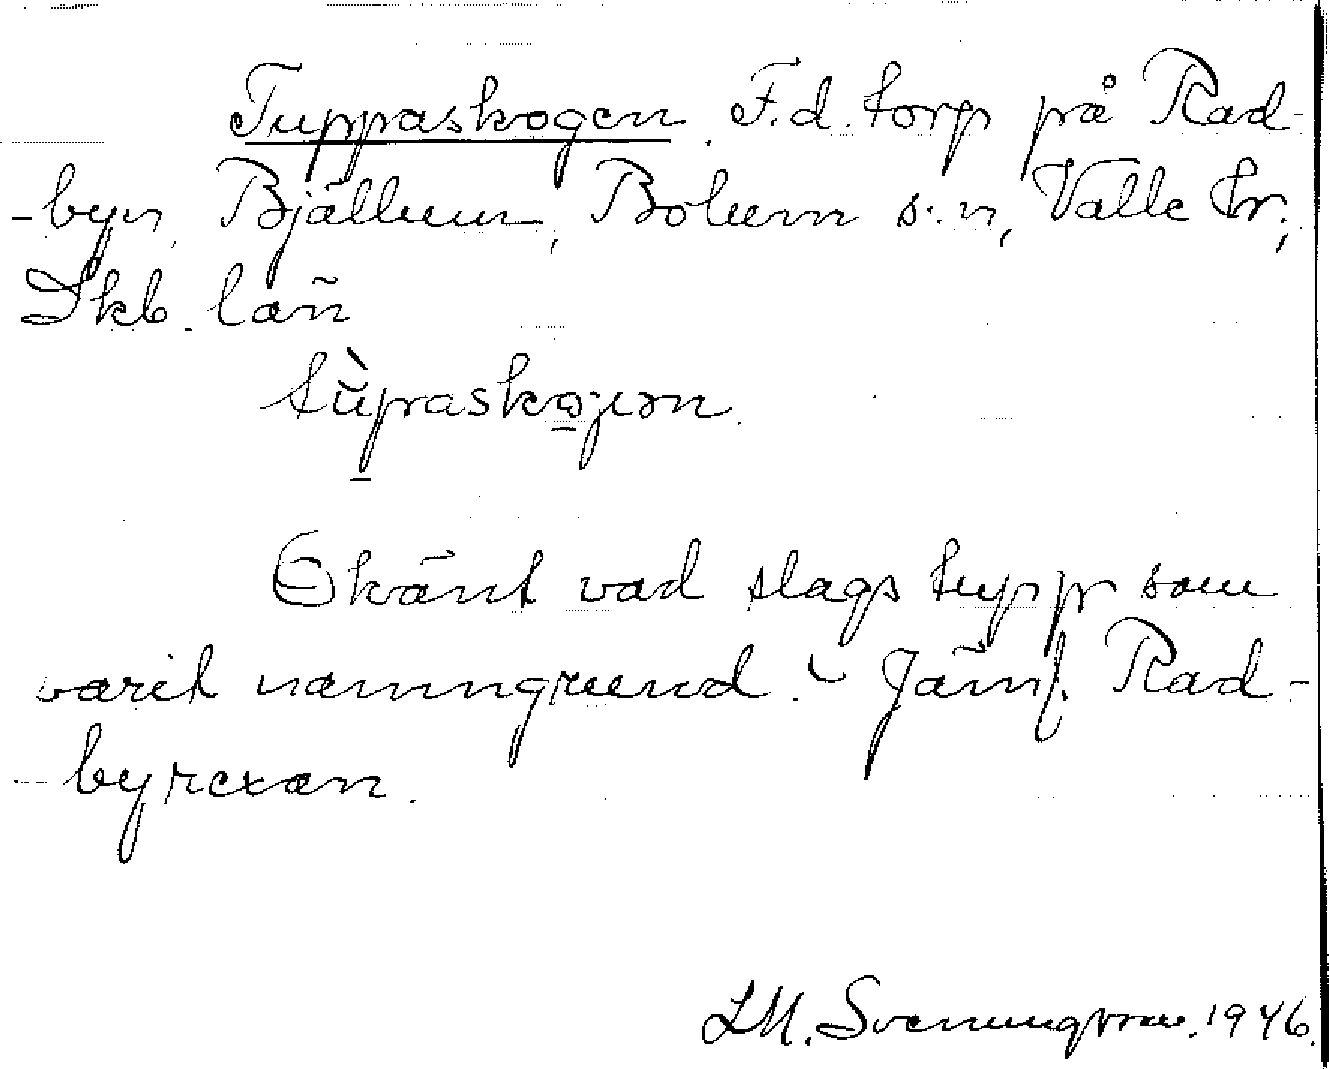 Tuppaskogen. F.d. torp på Rad-
-byn, Bjällum, Bolum s:n, Valle hr;
Skb. län
Okänt vad slags tupp som
varit namngrund. - Jämf. Rad-
-byrexan.
LM. Svenungsson. 1946.